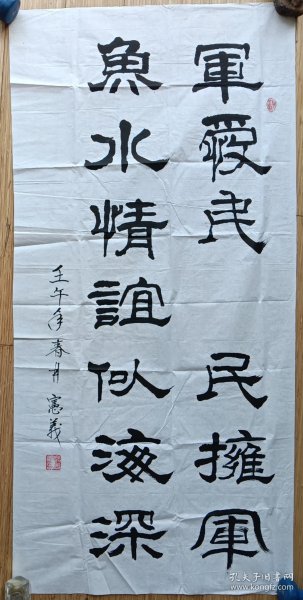 軍愛民 民擁軍
魚水情誼似海深
壬午年春月 憲義
孔夫子旧书网